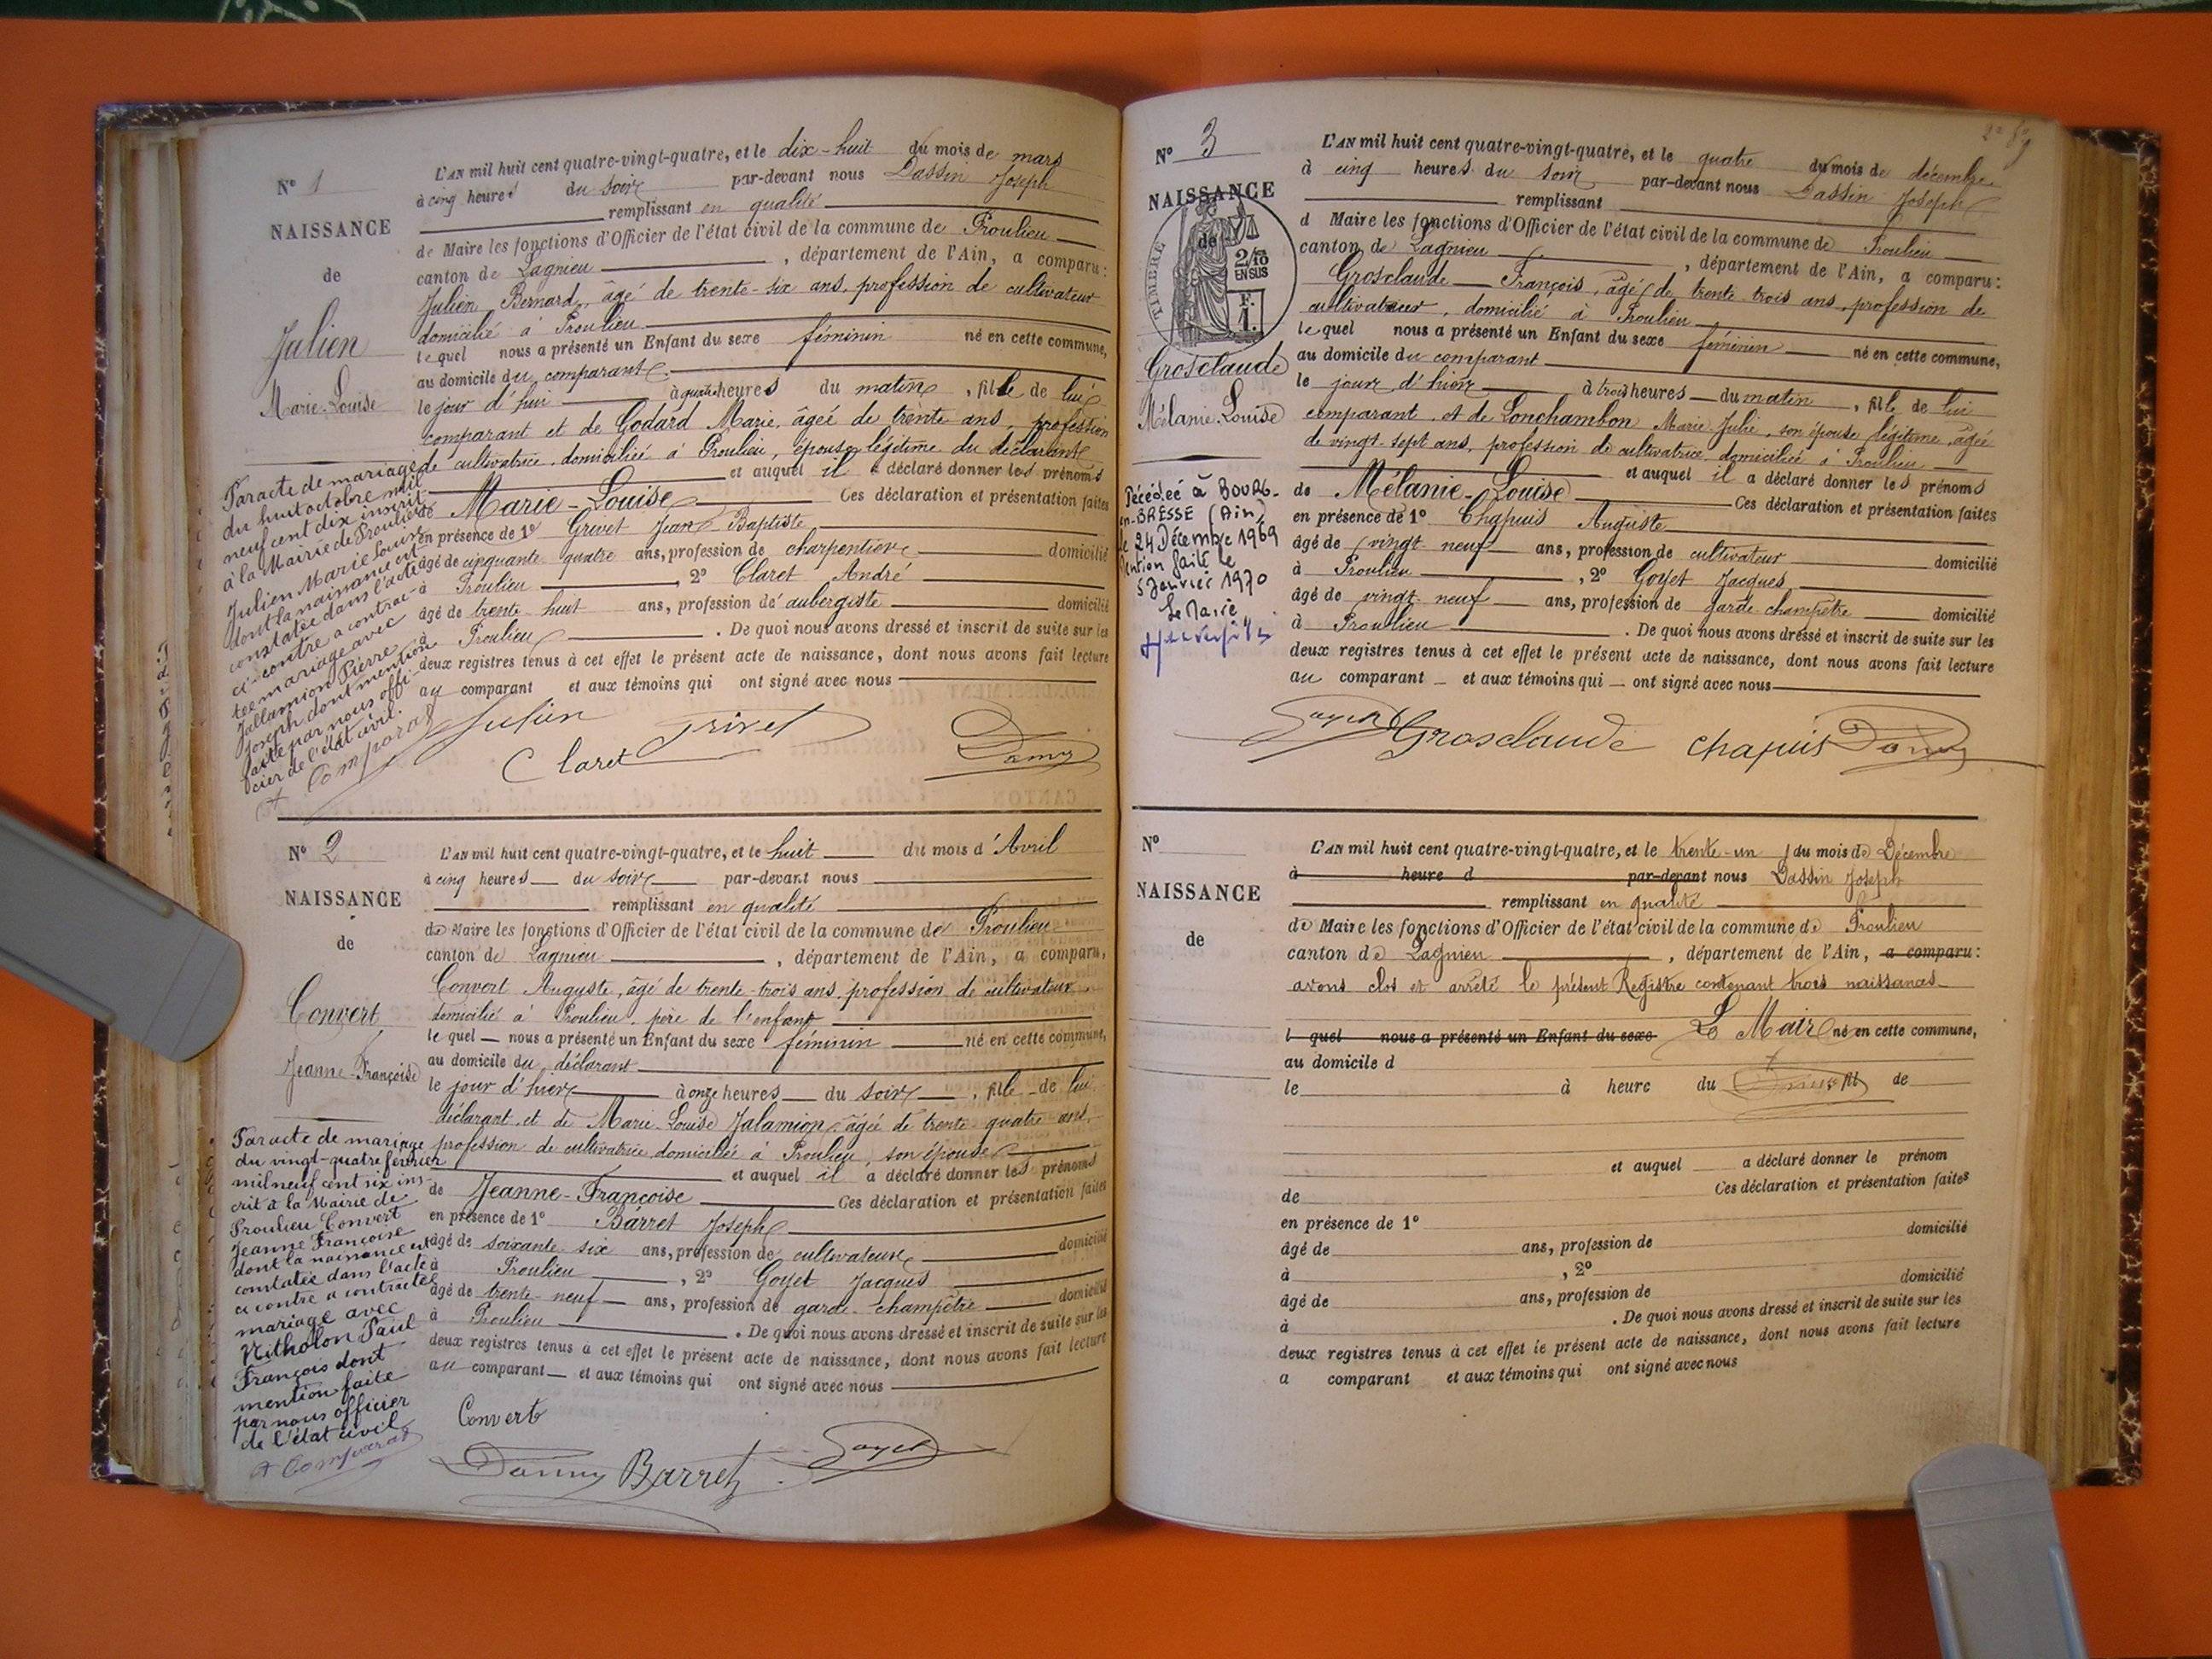 N° 1
NAISSANCE
de
Julien
Marie-Louise
L'AN mil huit cent quatre-vingt-quatre, et le dix-huit du mois de mars
à cinq heures du soir par-devant nous Dassin Joseph
remplissant en qualité
de Maire les fonctions d'Officier de l'état civil de la commune de Proulieu
canton de Lagnieu, département de l'Ain, a comparu:
Julien Bernard, âgé de trente-six ans, profession de cultivateur
domicilié à Proulieu
lequel nous a présenté un Enfant du sexe féminin né en cette commune,
au domicile du comparant
le jour d'hui à quatre heures du matin, fille de lui
comparant et de Godard Marie, âgée de trente ans, profession
de cultivatrice, domiciliée à Proulieu, épouse légitime du déclarant
et auquel il a déclaré donner les prénoms
de Marie-Louise Ces déclaration et présentation faites
en présence de 1° Grivet Jean Baptiste
âgé de cinquante quatre ans, profession de charpentier domicilié
à Proulieu, 2° Claret André
âgé de trente huit ans, profession d'aubergiste domicilié
à Proulieu. De quoi nous avons dressé et inscrit de suite sur les
deux registres tenus à cet effet le présent acte de naissance, dont nous avons fait lecture
au comparant et aux témoins qui ont signé avec nous
Julien Grivet
Claret
Par acte de mariage
du huit octobre mil
neuf cent dix inscrit
à la Mairie de Proulieu
Julien Marie Louise
dont la naissance est
constatée dans l'acte
ci-contre a contrac-
té mariage avec
Jallamion Pierre
Joseph dont mention
faite par nous offi-
cier de l'état civil.
N° 2
NAISSANCE
de
Convert
Jeanne-Françoise
L'AN mil huit cent quatre-vingt-quatre, et le huit du mois d'Avril
à cinq heures du soir par-devant nous
remplissant en qualité
de Maire les fonctions d'Officier de l'état civil de la commune de Proulieu
canton de Lagnieu, département de l'Ain, a comparu,
Convert Auguste, âgé de trente-trois ans, profession de cultivateur
domicilié à Proulieu, père de l'enfant
lequel nous a présenté un Enfant du sexe féminin né en cette commune,
au domicile du déclarant
le jour d'hier à onze heures du soir, fille de lui
déclarant et de Marie Louise Jalamion, âgée de trente quatre ans,
profession de cultivatrice domiciliée à Proulieu, son épouse
et auquel il a déclaré donner les prénoms
de Jeanne-Françoise Ces déclaration et présentation faites
en présence de 1° Barret Joseph
âgé de soixante six ans, profession de cultivateur domicilié
à Proulieu, 2° Goyet Jacques
âgé de trente-neuf ans, profession de garde-champêtre domicilié
à Proulieu. De quoi nous avons dressé et inscrit de suite sur les
deux registres tenus à cet effet le présent acte de naissance, dont nous avons fait lecture
au comparant et aux témoins qui ont signé avec nous
Convert
Barret Goyet
Par acte de mariage
du vingt-quatre février
mil neuf cent six ins-
crit à la Mairie de
Proulieu Convert
Jeanne Françoise
dont la naissance est
constatée dans l'acte
ci contre a contracté
mariage avec
Paul
François dont
mention faite
par nous officier
de l'état civil
N° 3
NAISSANCE
de
TIMBRE
2/10
EN SUS
F.
1.
Grosclaude
Mélanie-Louise
L'AN mil huit cent quatre-vingt-quatre, et le quatre du mois de décembre
à cinq heures du soir par-devant nous Dassin Joseph
remplissant
d Maire les fonctions d'Officier de l'état civil de la commune de Proulieu
canton de Lagnieu, département de l'Ain, a comparu:
Grosclaude François, âgé de trente-trois ans, profession de
cultivateur, domicilié à Proulieu
lequel nous a présenté un Enfant du sexe féminin né en cette commune,
au domicile du comparant
le jour d'hier à trois heures du matin, fille de lui
comparant, et de Lonchambon Marie Julie, son épouse légitime, âgée
de vingt-sept ans, profession de cultivatrice domiciliée à Proulieu
et auquel il a déclaré donner les prénoms
de Mélanie-Louise Ces déclaration et présentation faites
en présence de 1° Chapuis Auguste
âgé de vingt-neuf ans, profession de cultivateur domicilié
à Proulieu, 2° Goyet Jacques
âgé de vingt-neuf ans, profession de garde-champêtre domicilié
à Proulieu. De quoi nous avons dressé et inscrit de suite sur les
deux registres tenus à cet effet le présent acte de naissance, dont nous avons fait lecture
au comparant et aux témoins qui ont signé avec nous
Goyet Grosclaude Chapuis
Décédée à BOURG-
en-BRESSE (Ain)
le 24 Décembre 1969
Mention faite le
5 Janvier 1970
Le Maire
N°
NAISSANCE
de
L'AN mil huit cent quatre-vingt-quatre, et le trente-un du mois de Décembre
à heure d par-devant nous Dassin Joseph
remplissant en qualité
de Maire les fonctions d'Officier de l'état civil de la commune de Proulieu
canton de Lagnieu, département de l'Ain, a comparu:
avons clos et arrêté le présent Registre contenant trois naissances
l quel nous a présenté un Enfant du sexe Le Maire né en cette commune,
au domicile d
le à heure du fil de
et auquel a déclaré donner le prénom
de Ces déclaration et présentation faites
en présence de 1°
âgé de ans, profession de domicilié
à , 2°
âgé de ans, profession de domicilié
à . De quoi nous avons dressé et inscrit de suite sur les
deux registres tenus à cet effet le présent acte de naissance, dont nous avons fait lecture
a comparant et aux témoins qui ont signé avec nous